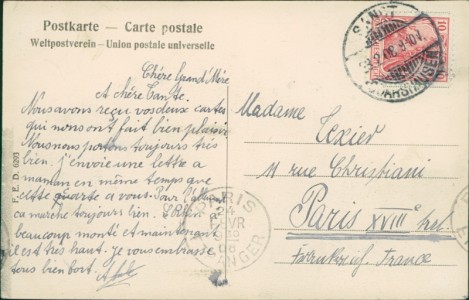 Postkarte — Carte postale
Weltpostverein – Union postale universelle
Chère Grand'Mère
et chère Tante.
Nous avons reçu vos deux cartes
qui nous ont fait bien plaisir
Nous nous portons toujours très
bien. j'envoie une lettre a
maman en même temps que
cette carte a vous. Pour
ca marche toujours bien.
beaucoup monté et maintenant
il est très haut. je vous embrasse
tous bien fort.
Madame
Texier
11 rue Christiani
Paris XVIIIe
Frankreich. France
F. E. D. 6293
SANKT
GOARSHAUSEN
10
PARIS
ETRANGER